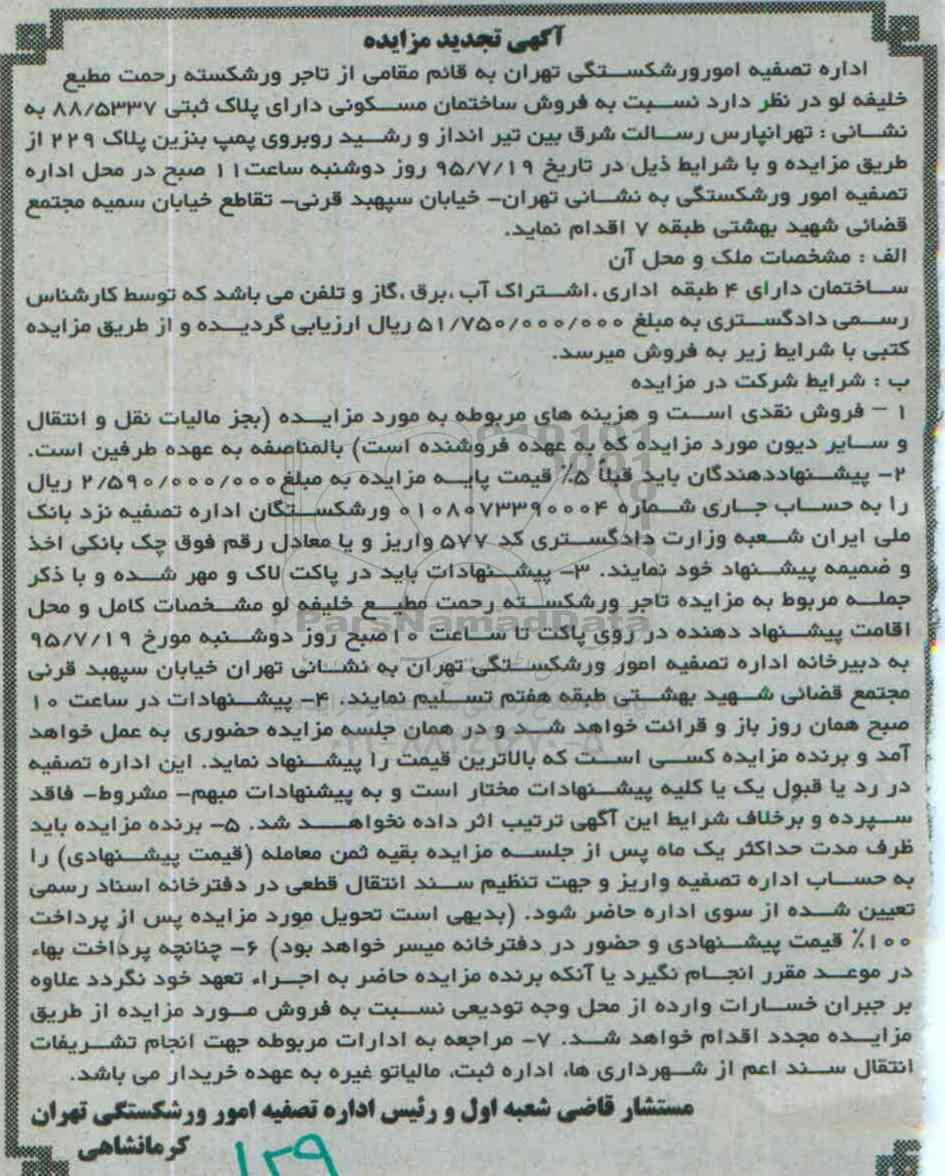 آگهی تجدید مزایده
اداره تصفیه امورورشکستگی تهران به قائم مقامی از تاجر ورشکسته رحمت مطیع
خلیفه لو در نظر دارد نسبت به فروش ساختمان مسکونی دارای پلاک ثبتی ۸۸/۵۳۳۷ به
نشانی : تهرانپارس رسالت شرق بین تیر انداز و رشید روبروی پمپ بنزین پلاک ۲۲۹ از
طریق مزایده و با شرایط ذیل در تاریخ ۹۵/۷/۱۹ روز دوشنبه ساعت۱۱ صبح در محل اداره
تصفیه امور ورشکستگی به نشانی تهران- خیابان سپهبد قرنی- تقاطع خیابان سمیه مجتمع
قضائی شهید بهشتی طبقه ۷ اقدام نماید.
الف : مشخصات ملک و محل آن
ساختمان دارای ۴ طبقه اداری ،اشتراک آب ،برق ،گاز و تلفن می باشد که توسط کارشناس
رسمی دادگستری به مبلغ ۵۱/۷۵۰/۰۰۰/۰۰۰ ریال ارزیابی گردیده و از طریق مزایده
کتبی با شرایط زیر به فروش میرسد.
ب : شرایط شرکت در مزایده
۱ – فروش نقدی است و هزینه های مربوطه به مورد مزایده (بجز مالیات نقل و انتقال
و سایر دیون مورد مزایده که به عهده فروشنده است) بالمناصفه به عهده طرفین است.
۲- پیشنهاددهندگان باید قبلا ۵٪ قیمت پایه مزایده به مبلغ ۲/۵۹۰/۰۰۰/۰۰۰ ریال
را به حساب جاری شماره ۰۱۰۸۰۷۳۳۹۰۰۰۴ ورشکستگان اداره تصفیه نزد بانک
ملی ایران شعبه وزارت دادگستری کد ۵۷۷ واریز و یا معادل رقم فوق چک بانکی اخذ
و ضمیمه پیشنهاد خود نمایند. ۳- پیشنهادات باید در پاکت لاک و مهر شده و با ذکر
جمله مربوط به مزایده تاجر ورشکسته رحمت مطیع خلیفه لو مشخصات کامل و محل
اقامت پیشنهاد دهنده در روی پاکت تا ساعت ۱۰صبح روز دوشنبه مورخ ۹۵/۷/۱۹
به دبیرخانه اداره تصفیه امور ورشکستگی تهران به نشانی تهران خیابان سپهبد قرنی
مجتمع قضائی شهید بهشتی طبقه هفتم تسلیم نمایند. ۴- پیشنهادات در ساعت ۱۰
صبح همان روز باز و قرائت خواهد شد و در همان جلسه مزایده حضوری به عمل خواهد
آمد و برنده مزایده کسی است که بالاترین قیمت را پیشنهاد نماید. این اداره تصفیه
در رد یا قبول یک یا کلیه پیشنهادات مختار است و به پیشنهادات مبهم- مشروط- فاقد
سپرده و برخلاف شرایط این آگهی ترتیب اثر داده نخواهد شد. ۵- برنده مزایده باید
ظرف مدت حداکثر یک ماه پس از جلسه مزایده بقیه ثمن معامله (قیمت پیشنهادی) را
به حساب اداره تصفیه واریز و جهت تنظیم سند انتقال قطعی در دفترخانه اسناد رسمی
تعیین شده از سوی اداره حاضر شود. (بدیهی است تحویل مورد مزایده پس از پرداخت
۱۰۰٪ قیمت پیشنهادی و حضور در دفترخانه میسر خواهد بود) ۶- چنانچه پرداخت بهاء
در موعد مقرر انجام نگیرد یا آنکه برنده مزایده حاضر به اجراء تعهد خود نگردد علاوه
بر جبران خسارات وارده از محل وجه تودیعی نسبت به فروش مورد مزایده از طریق
مزایده مجدد اقدام خواهد شد. ۷- مراجعه به ادارات مربوطه جهت انجام تشریفات
انتقال سند اعم از شهرداری ها، اداره ثبت، مالیاتو غیره به عهده خریدار می باشد.
مستشار قاضی شعبه اول و رئیس اداره تصفیه امور ورشکستگی تهران
کرمانشاهی
۱۲۹
ParsNamadData